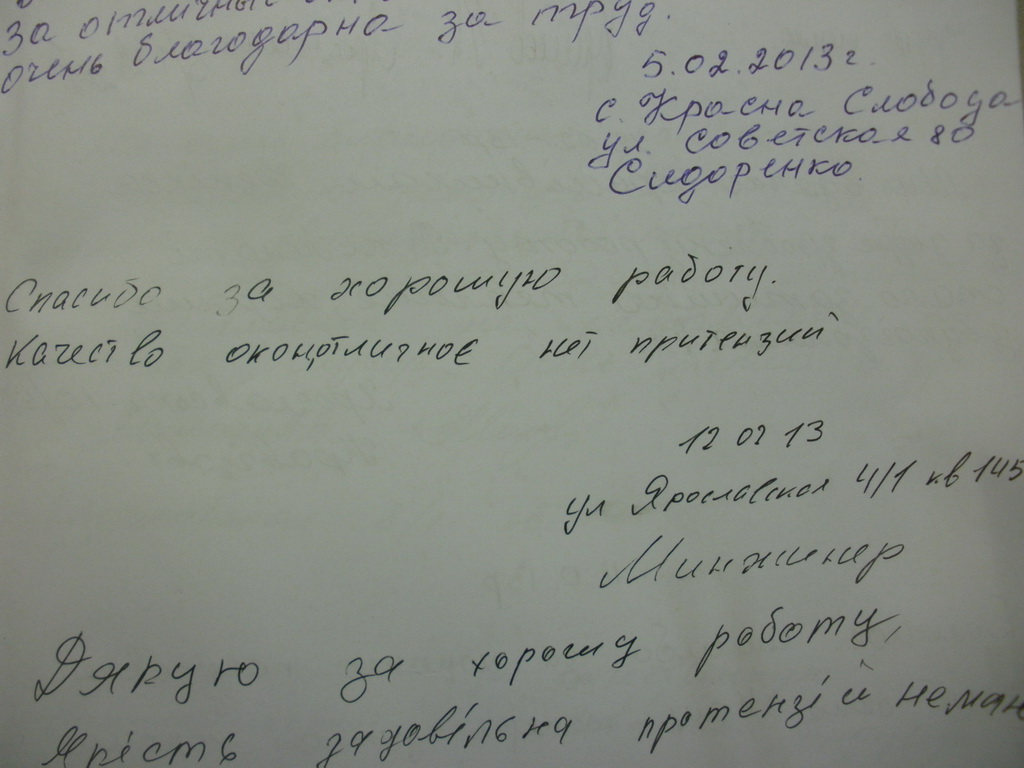 за отличные
очень благодарна за труд.
5.02.2013г.
с. Красна Слобода
ул. Советская 80
Сидоренко
Спасибо за хорошую работу.
Качество окон отличное нет притензий
12 02 13
ул Ярославская 4/1 кв 145
Минжинер
Дякую за хорошу роботу,
Якість задовільна протензій немаю